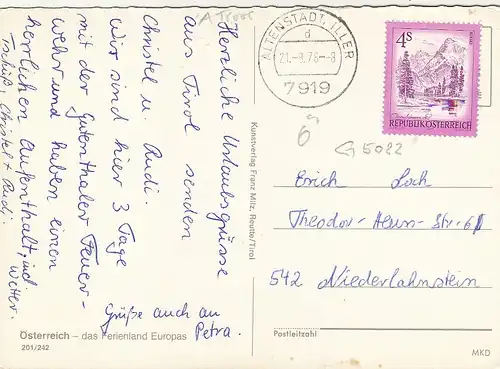 Herzliche Urlaubsgrüsse
aus Tirol senden
Christel u. Rudi.
Wir sind hier 3 Tage
mit der Gutenthaler Feuer-
wehr und haben einen
herrlichen Aufenthalt, incl.
Wetter.
Tschüß, Christel + Rudi.
Grüße auch an
Petra.
Österreich – das Ferienland Europas
201/242
Kunstverlag Franz Milz Reutte/Tirol
ALTENSTADT, ILLER
d
21.-8.76-8
7919
4S
REPUBLIK ÖSTERREICH
5022
Erich Loch
Theodor-Heuss-Str. 61
542 Niederlahnstein
Postleitzahl
MKD